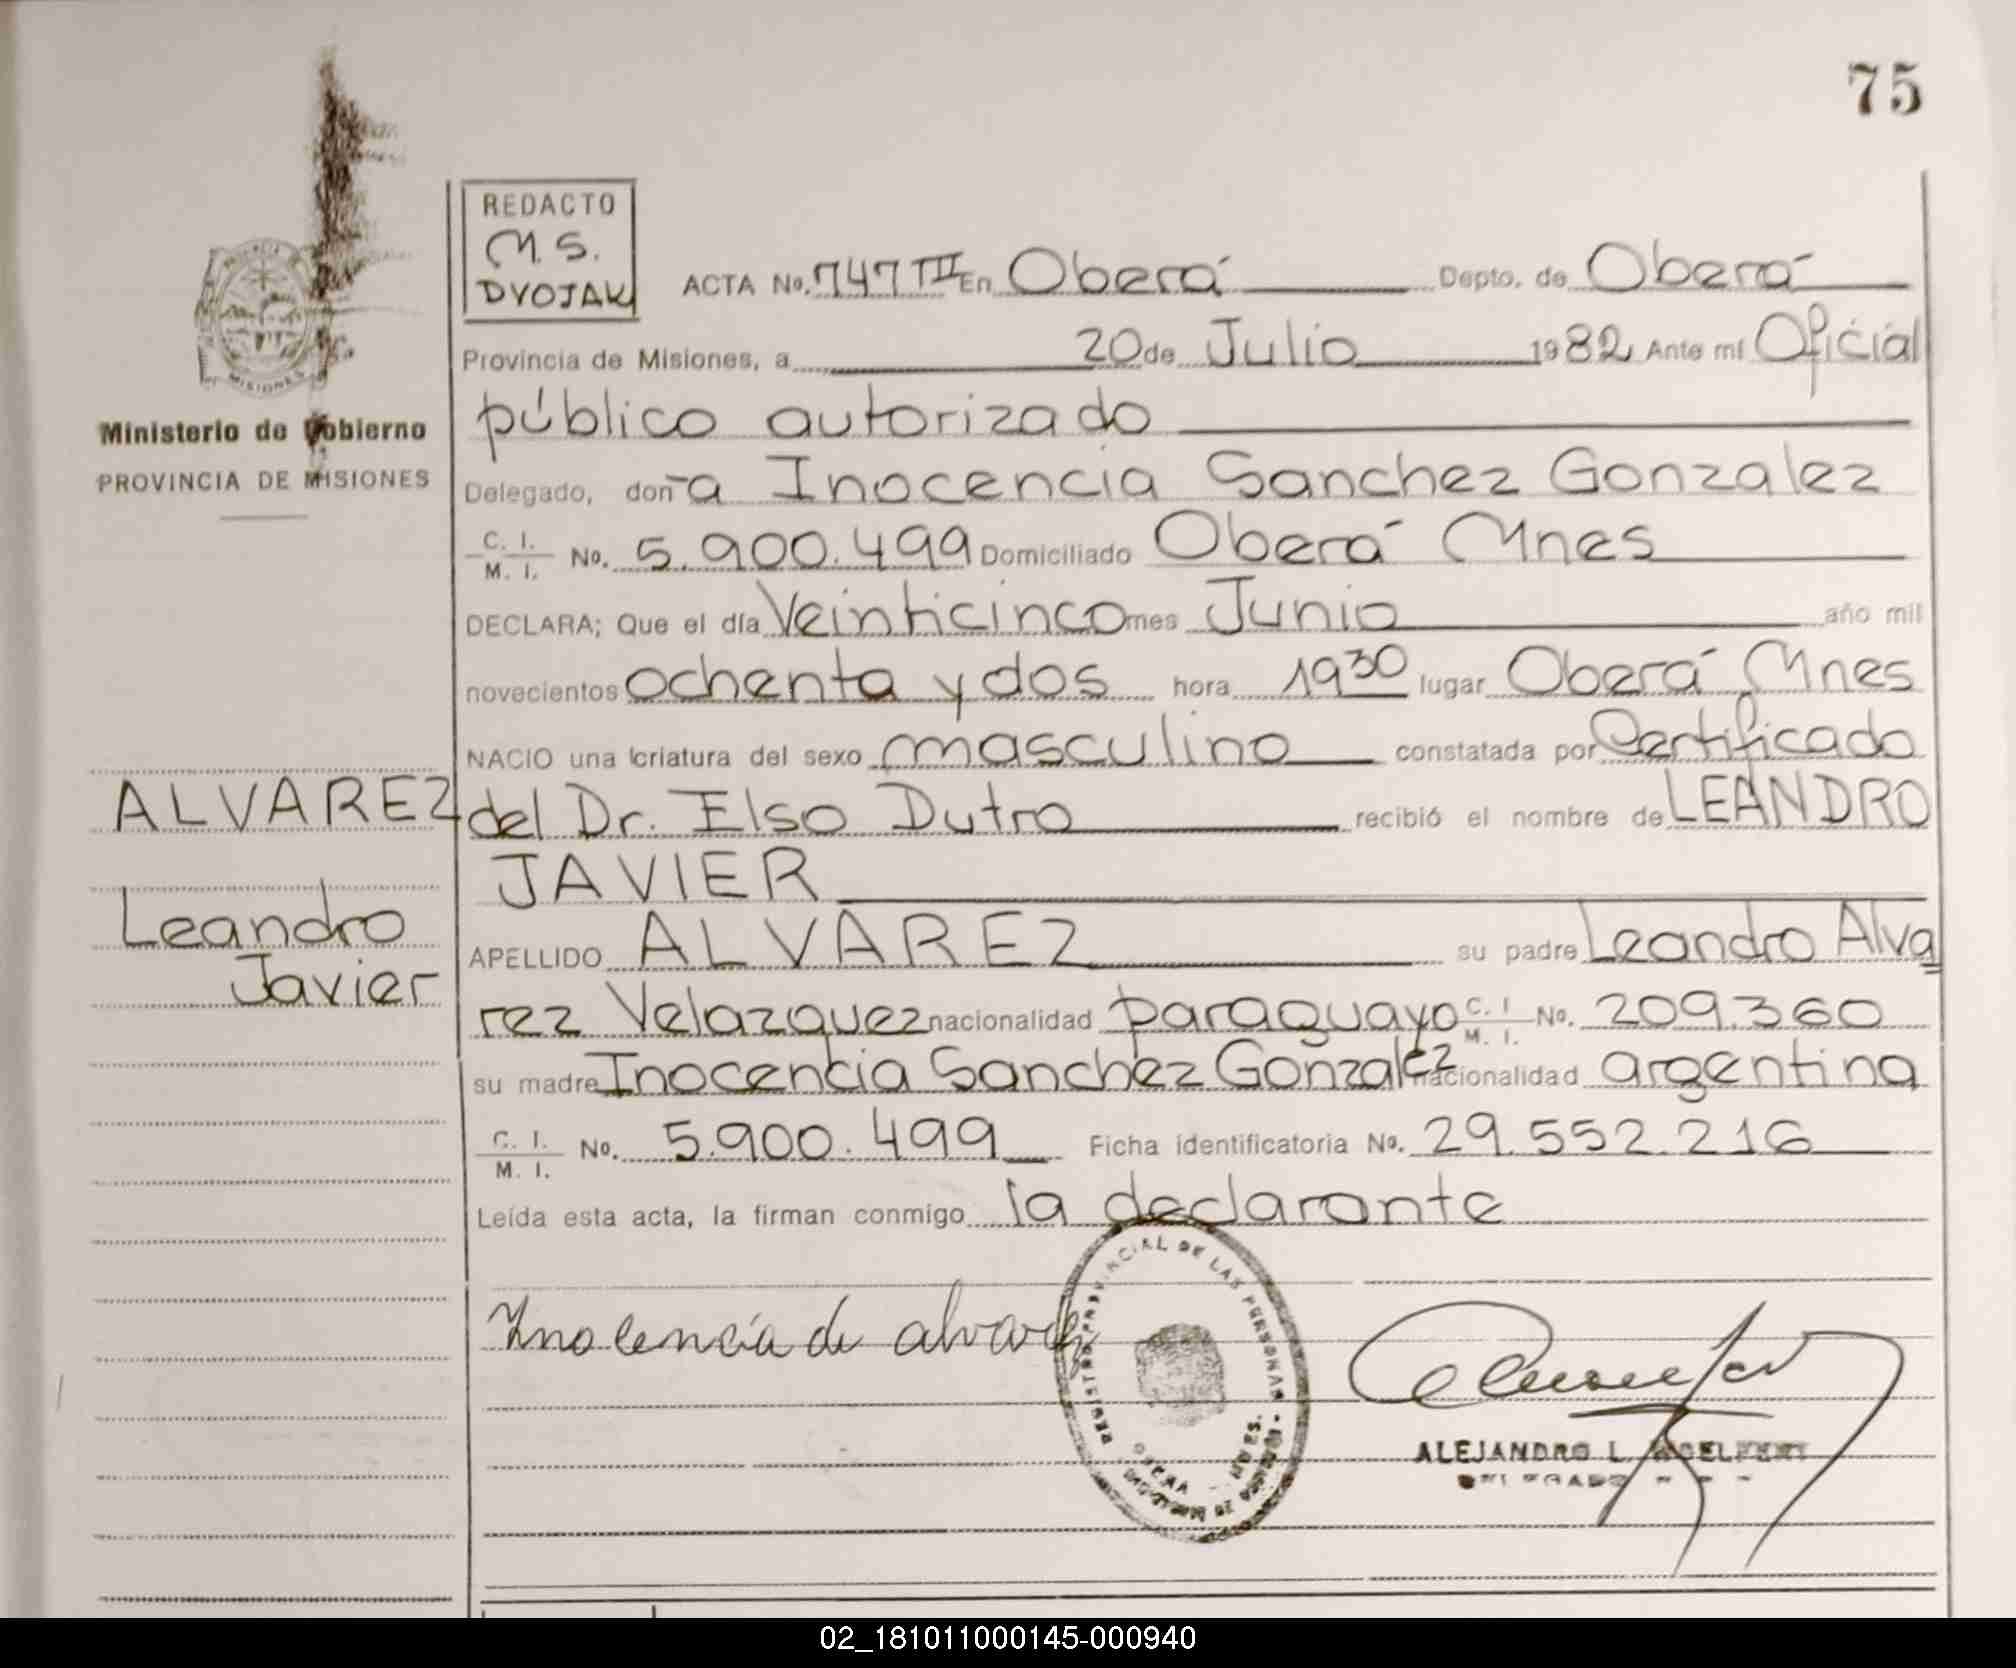 75
REDACTO
M. S.
DVOJAK
ACTA No. 747 III En Oberá Depto. de Oberá
Provincia de Misiones, a 20 de Julio 1982 Ante mí Oficial
público autorizado
Delegado, don-a Inocencia Sanchez Gonzalez
C. I. / M. I. No. 5.900.499 Domiciliado Oberá Mnes
DECLARA; Que el día Veinticinco mes Junio año mil
novecientos ochenta y dos hora 19 30 lugar Oberá Mnes
NACIO una criatura del sexo masculino constatada por Certificado
del Dr. Elso Dutro recibió el nombre de LEANDRO
JAVIER
APELLIDO ALVAREZ su padre Leandro Alva
rez Velazquez nacionalidad paraguayo C. I / M. I. No. 209.360
su madre Inocencia Sanchez Gonzalez nacionalidad argentina
C. I. / M. I. No. 5.900.499 Ficha identificatoria No. 29.552.216
Leída esta acta, la firman conmigo la declarante
Inocencia de alvarez
PROVINCIAL DE LAS PERSONAS
ALEJANDRO L.
DELEGADO
MISIONES
Ministerio de Gobierno
PROVINCIA DE MISIONES
ALVAREZ
Leandro
Javier
02_181011000145-000940